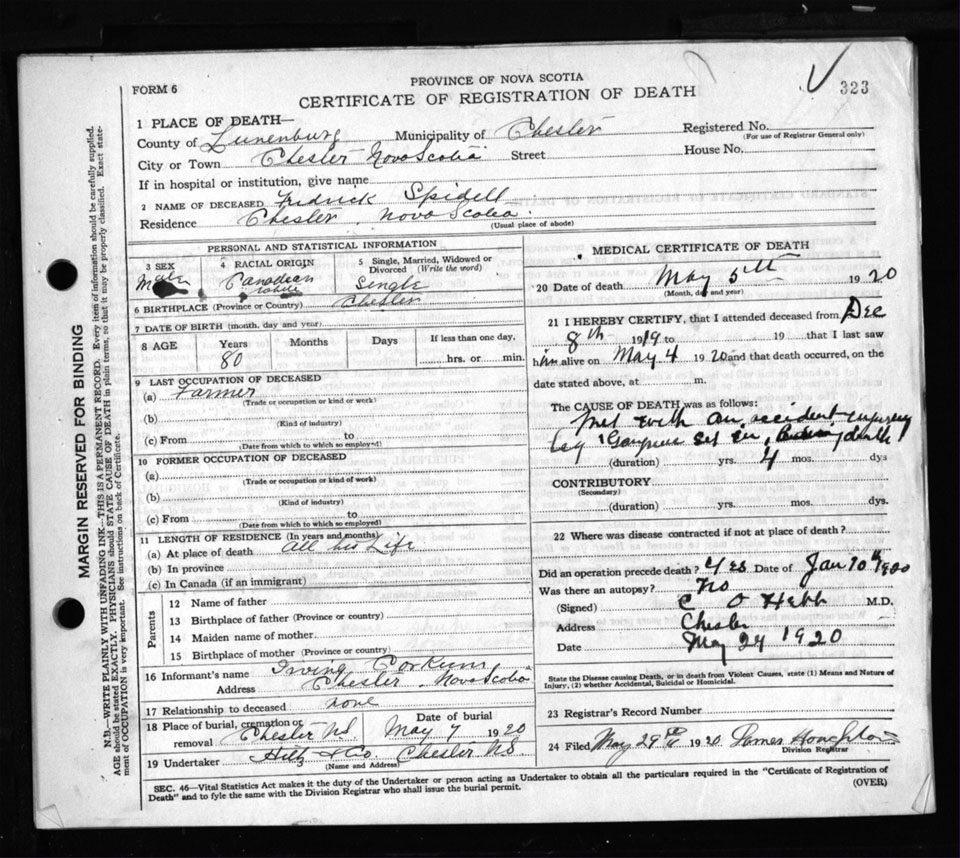 PROVINCE OF NOVA SCOTIA
FORM 6
CERTIFICATE OF REGISTRATION OF DEATH
323
1 PLACE OF DEATH—
County of Lunenburg Municipality of Chester Registered No.
(For use of Registrar General only)
City or Town Chester Nova Scotia Street House No.
If in hospital or institution, give name
2 NAME OF DECEASED Fredrick Spidell
Residence Chester Nova Scotia
(Usual place of abode)
PERSONAL AND STATISTICAL INFORMATION
3 SEX Male
4 RACIAL ORIGIN Canadian white
5 Single, Married, Widowed or Divorced (Write the word) Single
6 BIRTHPLACE (Province or Country) Chester
7 DATE OF BIRTH (month, day and year)
8 AGE Years Months Days If less than one day,
80 hrs. or min.
9 LAST OCCUPATION OF DECEASED
(a) Farmer
(Trade or occupation or kind or work)
(b)
(Kind of industry)
(c) From to
(Date from which to which so employed)
10 FORMER OCCUPATION OF DECEASED
(a)
(Trade or occupation or kind of work)
(b)
(Kind of industry)
(c) From to
(Date from which to which so employed)
11 LENGTH OF RESIDENCE (In years and months)
(a) At place of death all his Life
(b) In province
(c) In Canada (if an immigrant)
Parents
12 Name of father
13 Birthplace of father (Province or country)
14 Maiden name of mother
15 Birthplace of mother (Province or country)
16 Informant's name Irving Corkum
Address Chester Nova Scotia
17 Relationship to deceased none
18 Place of burial, cremation or removal Chester NS Date of burial May 7 1920
19 Undertaker Hilz & Co Chester NS
(Name and Address)
MEDICAL CERTIFICATE OF DEATH
20 Date of death May 5th 1920
(Month, day and year)
21 I HEREBY CERTIFY, that I attended deceased from Dec
8th 1919 to 19 that I last saw
him alive on May 4 1920 and that death occurred, on the
date stated above, at m.
The CAUSE OF DEATH was as follows:
Met with an accident
set in, death
(duration) yrs. 4 mos. dys
CONTRIBUTORY
(Secondary)
(duration) yrs. mos. dys.
22 Where was disease contracted if not at place of death?
Did an operation precede death? Yes Date of Jan 10th 1920
Was there an autopsy? No
(Signed) C O Hebb M.D.
Address Chester
Date May 24 1920
State the Disease causing Death, or in death from Violent Causes, state (1) Means and Nature of
Injury, (2) whether Accidental, Suicidal or Homicidal.
23 Registrar's Record Number
24 Filed May 29th 1920 James Houghton
Division Registrar
SEC. 46—Vital Statistics Act makes it the duty of the Undertaker or person acting as Undertaker to obtain all the particulars required in the "Certificate of Registration of
Death" and to fyle the same with the Division Registrar who shall issue the burial permit.
(OVER)
MARGIN RESERVED FOR BINDING
N.B.—WRITE PLAINLY WITH UNFADING INK—THIS IS A PERMANENT RECORD. Every item of information should be carefully supplied.
AGE should be stated EXACTLY. PHYSICIANS should STATE CAUSE OF DEATH in plain terms, so that it may be properly classified. Exact state-
ment of OCCUPATION is very important. See instructions on back of Certificate.